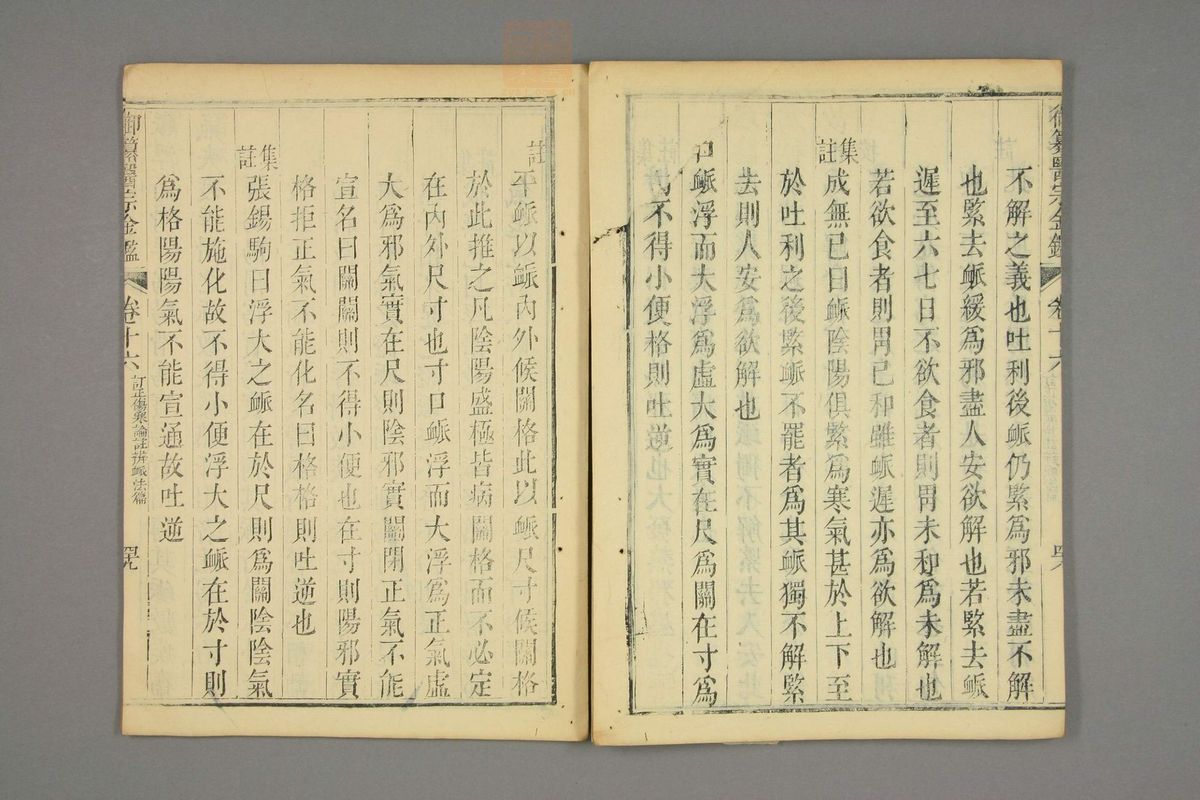 御纂醫宗金鑑
不解之義也吐利後脈仍緊為邪未盡不解
也緊去脈緩為邪盡人安欲解也若緊去脈
遲至六七日不欲食者則胃未和為未解也
若欲食者則胃已和雖脈遲亦為欲解也
集註
成無已曰脈陰陽俱緊為寒氣甚於上下至
於吐利之後緊脈不罷者為其脈獨不解緊
去則人安為欲解也
口脈浮而大浮為虛大為實在尺為關在寸為
不得小便格則吐逆也
註
平脈以脈內外候關格此以脈尺寸候關格
於此推之凡陰陽盛極皆病關格而不必定
在內外尺寸也寸口脈浮而大浮為正氣虛
大為邪氣實在尺則陰邪實關閉正氣不能
宣名曰關關則不得小便也在寸則陽邪實
格拒正氣不能化名曰格格則吐逆也
集註
張錫駒曰浮大之脈在於尺則為關陰陰氣
不能施化故不得小便浮大之脈在於寸則
為格陽陽氣不能宣通故吐逆
御纂醫宗金鑑 卷十六 訂正傷寒論註辨脈法篇